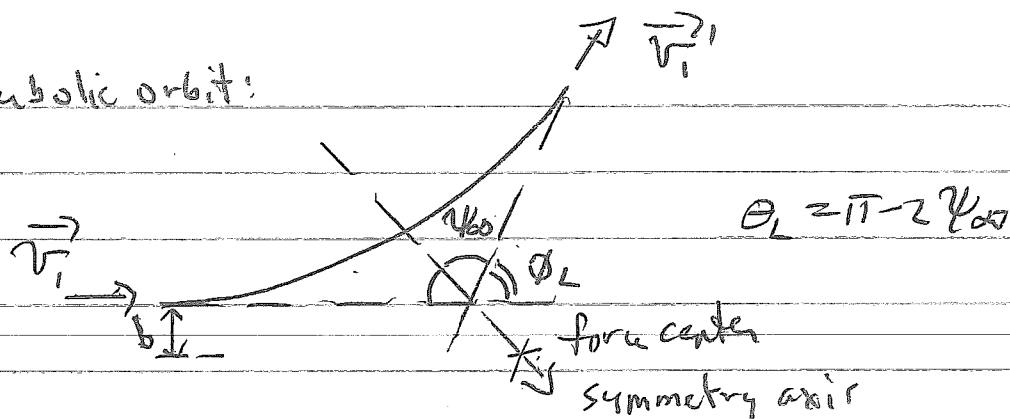 abolic orbit:
v₁'
ψ∞
θ_L = π - 2ψ∞
v₁
ϕ_L
b
force center
symmetry axis